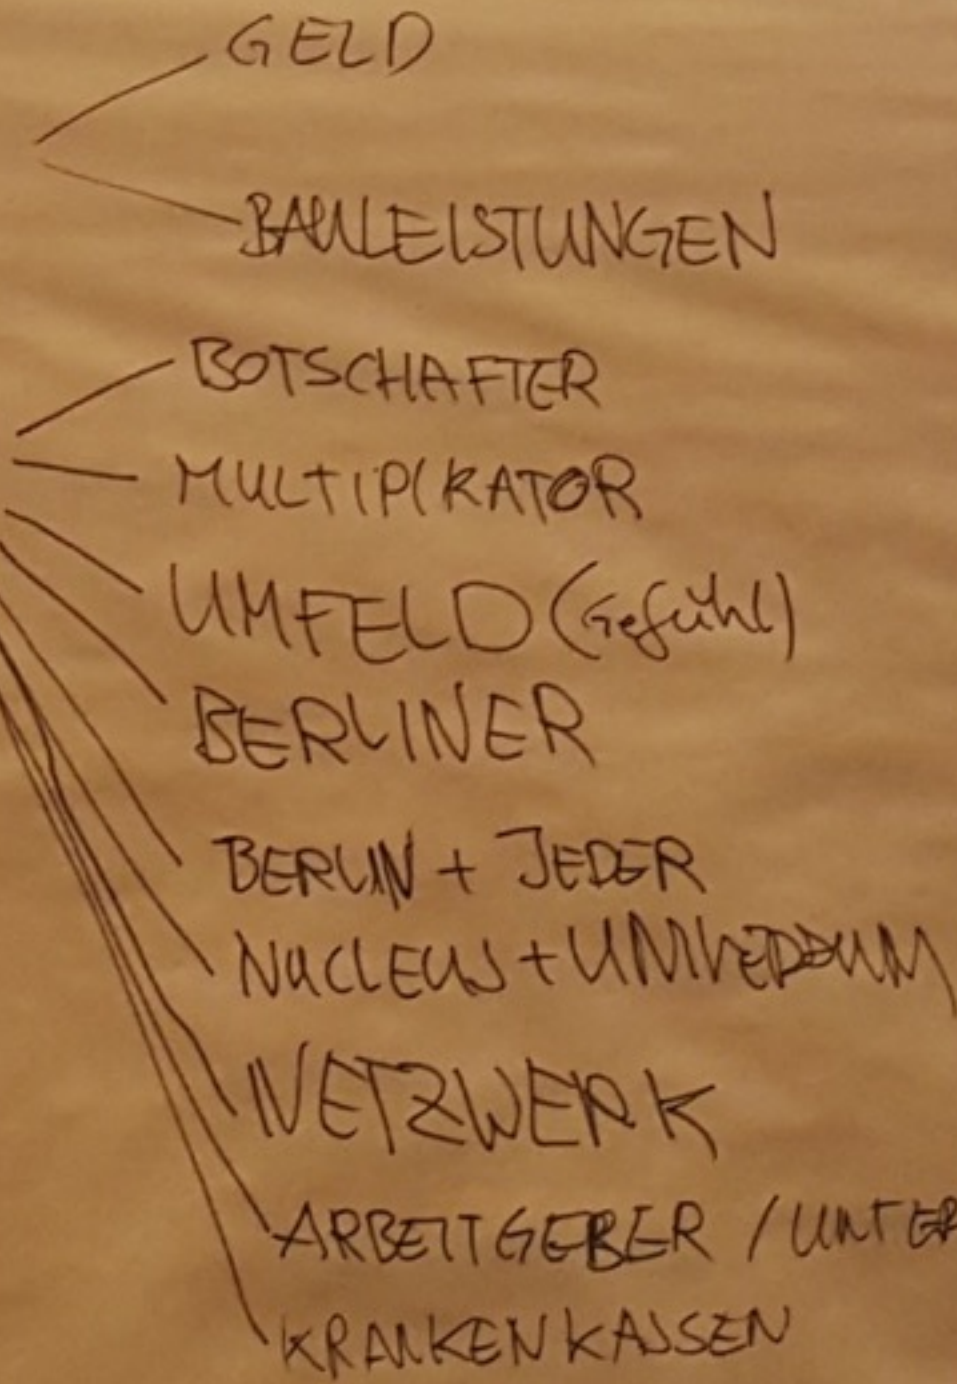 GELD
BAULEISTUNGEN
BOTSCHAFTER
MULTIPIKATOR
UMFELD (Gefühl)
BERLINER
BERLIN + JEDER
NUCLEUS +
NETZWERK
ARBEITGEBER / UNTER
KRANKENKASSEN